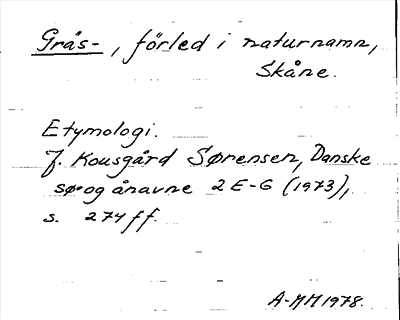 Grås-, förled i naturnamn,
Skåne.
Etymologi.
J. Kousgård Sørensen, Danske
sø- og ånavne 2 E-G (1973),
s. 274 ff.
A-MM 1978.